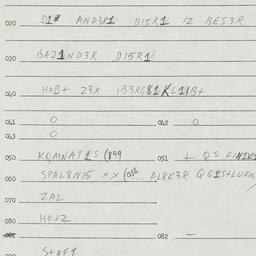 020 D1* AND3R1 D15R1 12 BES3R
030 BAZ1ND3R D15R1
040 HOB+ 23X 1B3RG81KL11B+
041 O 042 O
043 O
050 KQMNAT1S (849 051 + QS
060 SPAL8N15 XX (056 AL8K3R
070 ZAL
080 HOJZ
081 082 —
StAF1